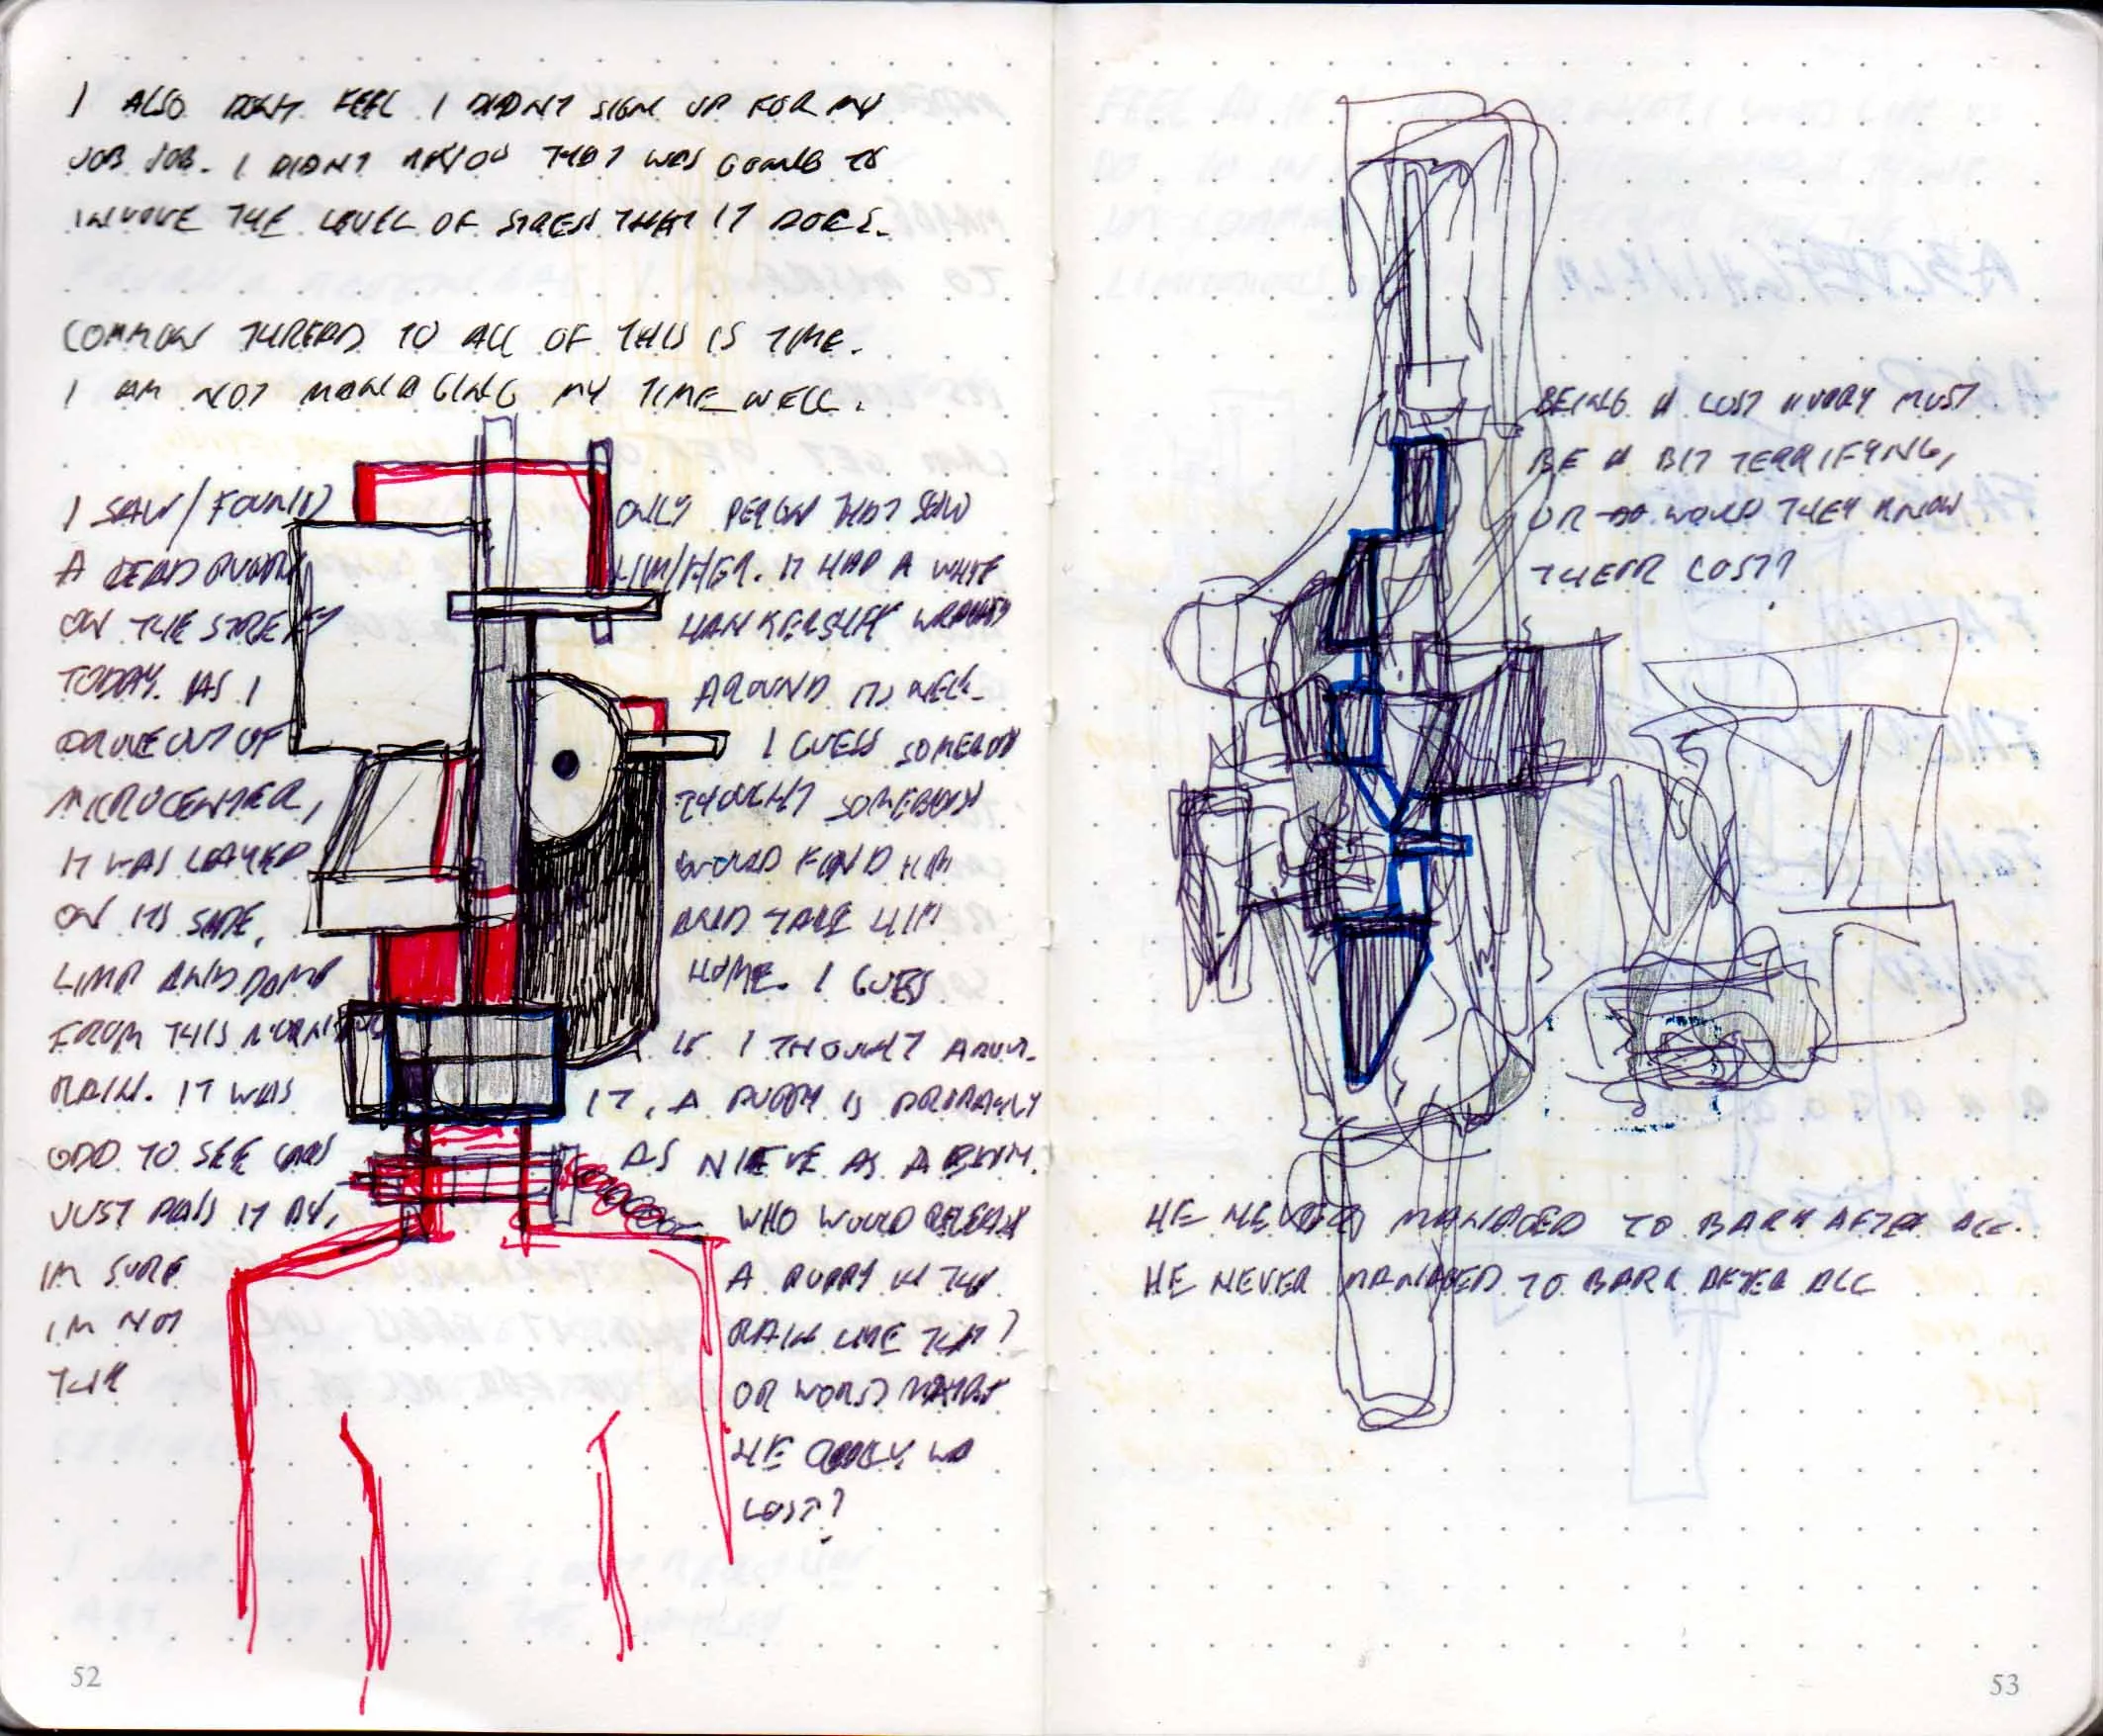 I ALSO DONT FEEL I DIDNT SIGN UP FOR MY
JOB JOB. I DIDNT KNOW THAT WAS GOING TO
INVOVE THE LEVEL OF STRESS THAT IT DOES.
COMMON THREAD TO ALL OF THIS IS TIME.
I AM NOT MANAGING MY TIME WELL.
I SAW/FOUND
A DEAD PUPPY
ON THE STREET
TODAY. AS I
DROVE OUT OF
MICROCENTER,
IT WAS LAYED
ON ITS SIDE,
LIMP AND DAMP
FROM THIS MORNING
RAIN. IT WAS
ODD TO SEE CARS
JUST PASS IT BY,
IM SURE
IM NOT
THE
ONLY PERSON THAT SAW
HIM/HER. IT HAD A WHITE
HANKERSHIF WRAPPED
AROUND ITS NECK.
I GUESS SOMEBODY
THOUGHT SOMEBODY
WOULD FIND HIM
AND TAKE HIM
HOME. I GUESS
IF I THOUGHT ABOUT
IT, A PUPPY IS PROBABLY
AS NIEVE AS A
WHO WOULD RELEASE
A PUPPY IN THE
RAIN LIKE THAT?
OR WORST MAYBE
HE
LOST?
52
BEING A LOST PUPPY MUST
BE A BIT TERRIFYING,
OR DO WOULD THEY KNOW
THEIR LOST?
HE NEVER MANAGED TO BARK AFTER ALL.
HE NEVER MANAGED TO BARK AFTER ALL
53